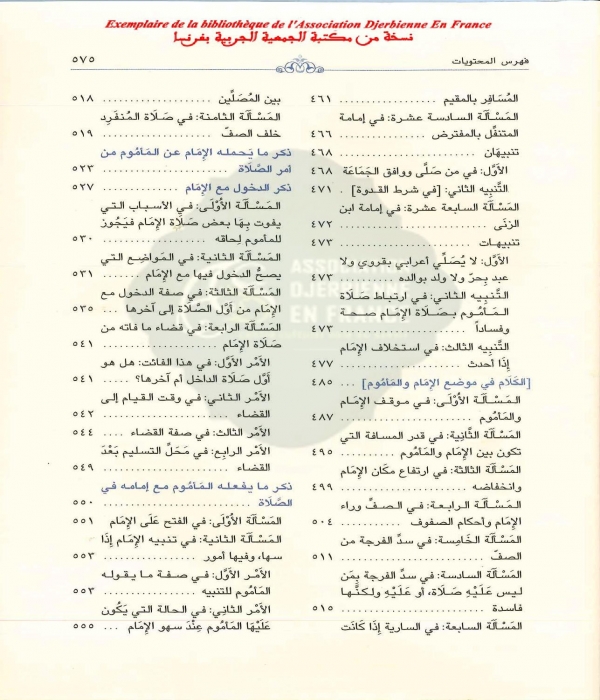 Exemplaire de la bibliothèque de l'Association Djerbienne En France
نسخة من مكتبة الجمعية الجربية بفرنسا
فهرس المحتويات
٥٧٥
المُسَافِر بالمقيم .................. ٤٦١
المَسْأَلَة السادسة عشرة: في إمامة
المتنفِّل بالمفترض .................. ٤٦٦
تنبيهَان .................. ٤٦٨
الأوَّل: في من صَلَّى ووافق الجَمَاعَة ٤٦٨
التَّنبِيه الثاني: [في شرط القدوة] . ٤٧١
المَسْأَلَة السابعة عشرة: في إمامة ابن
الزنَى .................. ٤٧٢
تنبيهات .................. ٤٧٣
الأوَّل: لا يُصَلِّي أعرابي بقروي ولا
عبد بِحرّ ولا ولد بوالده .......... ٤٧٣
التَّنبِيه الثاني: في ارتباط صَلَاة
المَأمُوم بصَلَاة الإمَام صحة
وفساداً .................. ٤٧٣
التَّنبِيه الثالث: في استخلاف الإمَام
إذَا أحدث .................. ٤٧٧
[الكَلَام في موضع الإمَام والمَأمُوم] ... ٤٨٥
المَسْأَلَة الأُولَى: في موقف الإمَام
والمَأمُوم .................. ٤٨٧
المَسْأَلَة الثَّانِية: في قدر المسافة التي
تكون بين الإمَام والمَأمُوم ........ ٤٩٥
المَسْأَلَة الثالثة: في ارتفاع مكان الإمَام
وانخفاضه .................. ٤٩٩
المَسْأَلَة الرابعة: في الصفّ وراء
الإمَام وأحكام الصفوف .......... ٥٠٤
المَسْأَلَة الخَامِسة: في سدِّ الفرجة من
الصفّ .................. ٥١١
المَسْأَلَة السادسة: في سدِّ الفرجة بِمَن
ليس عَلَيْهِ صَلَاة، أو عَلَيْهِ ولكنَّها
فاسدة .................. ٥١٥
المَسْأَلَة السابعة: في السارية إذَا كَانَت
بين المُصَلِّين .................. ٥١٨
المَسْأَلَة الثامنة: في صَلَاة المُنفَرِد
خلف الصفّ .................. ٥١٩
ذكر ما يَحمله الإمَام عن المَأمُوم من
أمر الصَّلَاة .................. ٥٢٣
ذكر الدخول مع الإمَام .......... ٥٢٧
المَسْأَلَة الأُولَى: في الأسباب التي
يفوت بِهَا بعض صَلَاة الإمَام فَيَجُوز
للمأموم لِحاقه .................. ٥٣٠
المَسْأَلَة الثانية: في المَوَاضِع التي
يصحُّ الدخول فيها مع الإمَام ...... ٥٣١
المَسْأَلَة الثالثة: في صفة الدخول مع
الإمَام من أوَّل الصَّلَاة إلى آخرها .. ٥٣٥
المَسْأَلَة الرابعة: في قضاء ما فاته من
صَلَاة الإمَام .................. ٥٤١
الأَمْر الأوَّل: في هذا الفائت: هل هو
أوَّل صَلَاة الداخل أم آخرها؟ ..... ٥٤١
الأَمْر الثاني: في وقت القيام إلى
القضاء .................. ٥٤٢
الأَمْر الثالث: في صفة القضاء .... ٥٤٤
الأَمْر الرابع: في مَحَلِّ التسليم بَعْدَ
القضاء .................. ٥٤٩
ذكر ما يفعله المَأمُوم مع إمامه في
الصَّلَاة .................. ٥٥٠
المَسْأَلَة الأُولَى: في الفتح عَلَى الإمَام ٥٥١
المَسْأَلَة الثانية: في تنبيه الإمَام إذَا
سها، وفيها أمور .................. ٥٥٣
الأَمْر الأوَّل: في صفة ما يقوله
المَأمُوم للتنبيه .................. ٥٥٣
الأَمْر الثاني: في الحالة التي يَكُون
عَلَيْهَا المَأمُوم عِنْدَ سهو الإمَام ... ٥٥٥
ASSOCIATION
DJERBIENNE
EN FRANCE